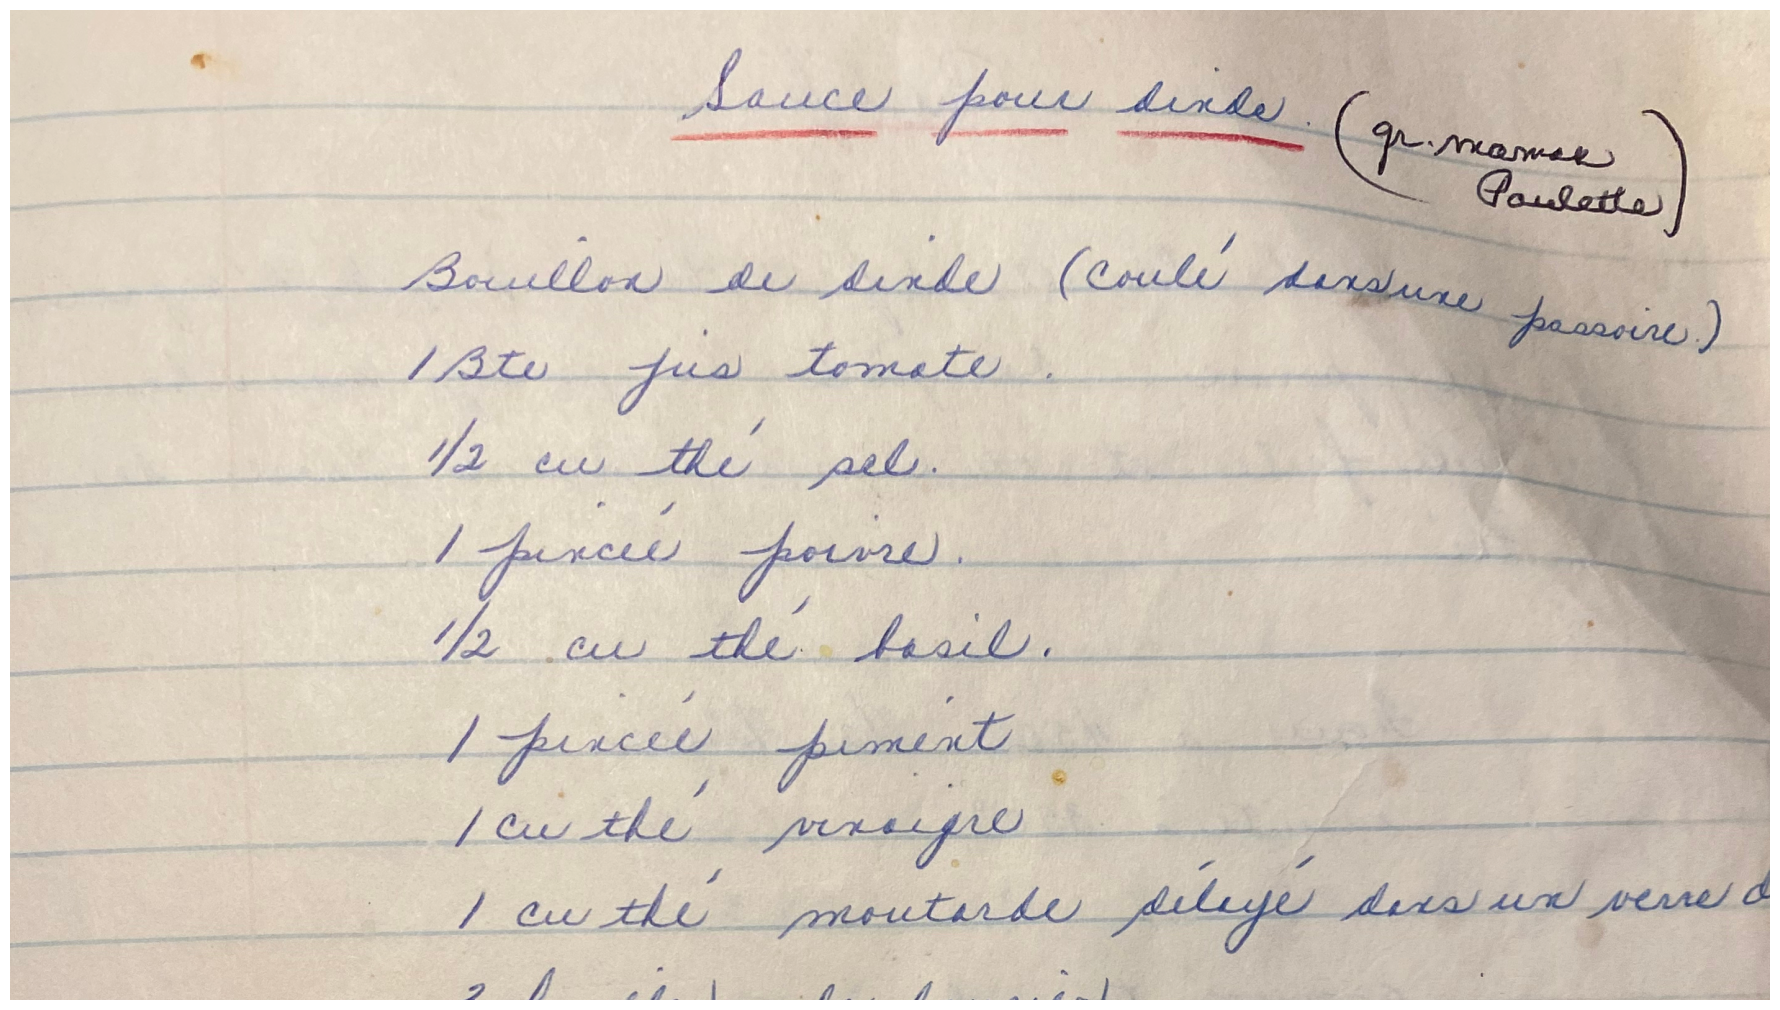 Sauce pour dinde. (gr. maman
Paulette)
Bouillon de dinde (coulé dans une passoire.)
1 Bte jus tomate.
1/2 cu thé sel.
1 pincée poivre.
1/2 cu thé basil.
1 pincée piment
1 cu thé vinaigre
1 cu thé moutarde délayé dans un verre d